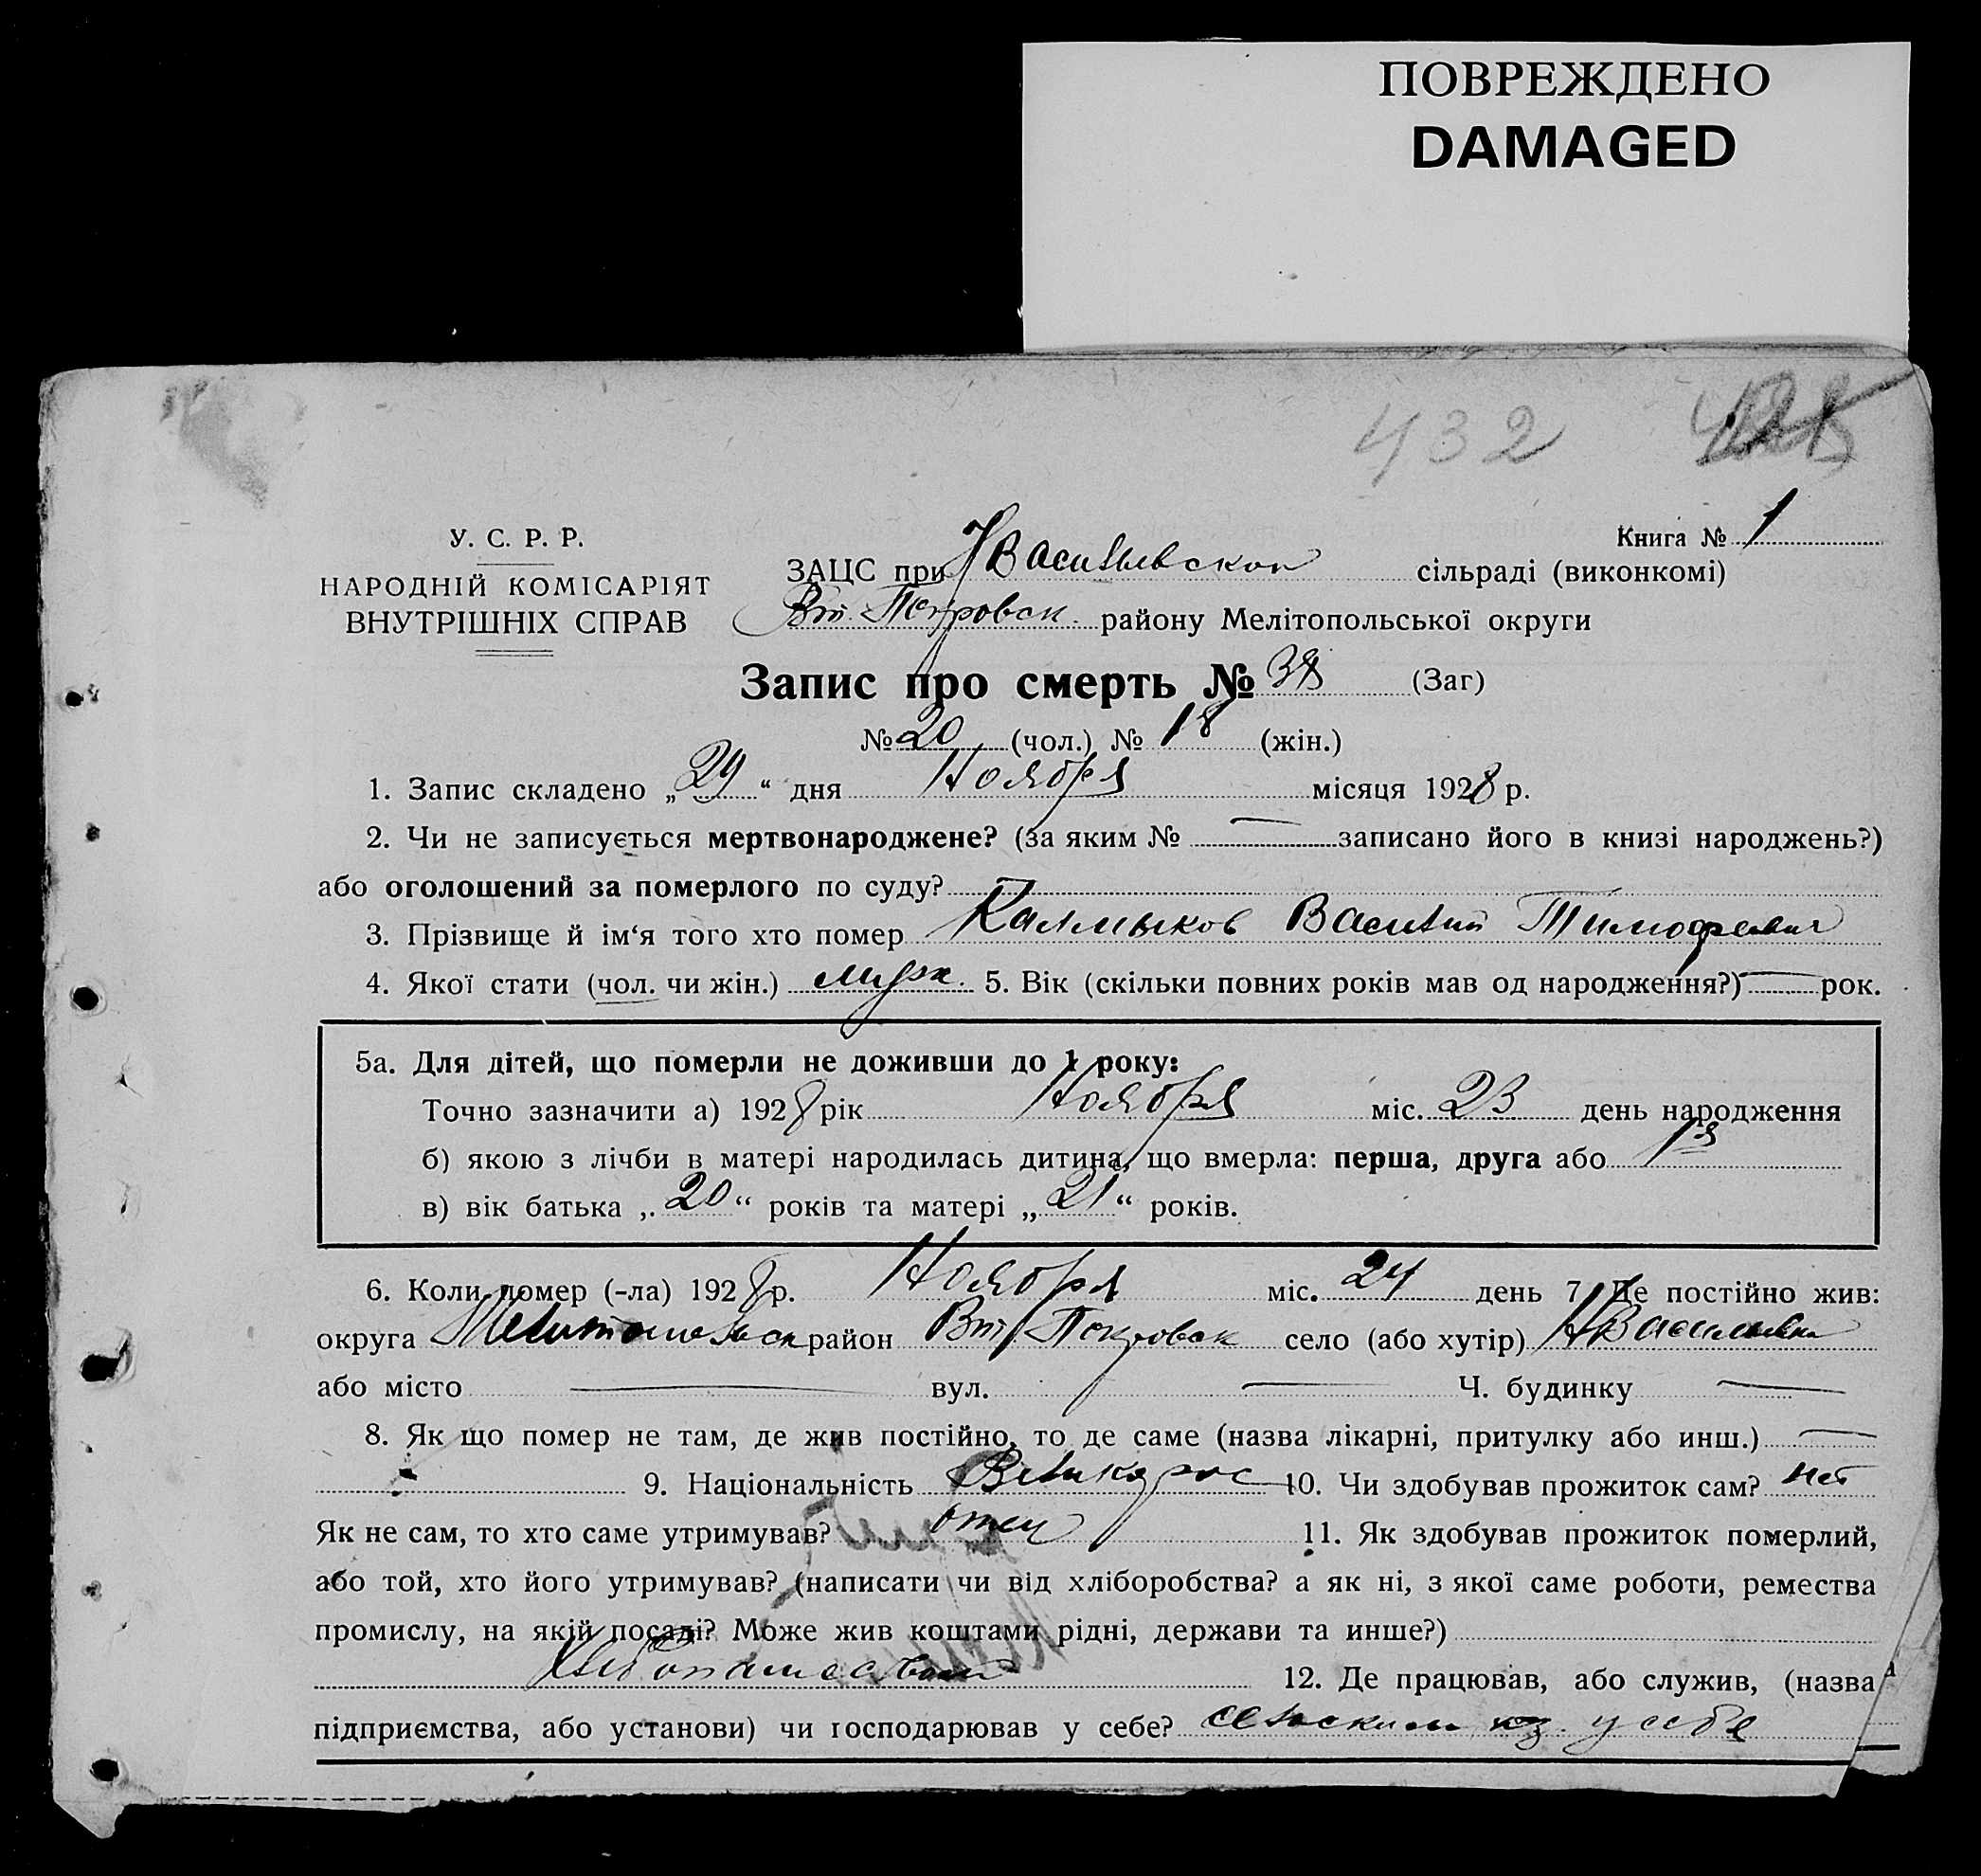 ПОВРЕЖДЕНО
DAMAGED
432
У. С. Р. Р.
НАРОДНІЙ КОМІСАРІЯТ
ВНУТРІШНІХ СПРАВ
Книга № 1
ЗАЦС при НВасильевском сільраді (виконкомі)
Вт. Покровск. району Мелітопольської округи
Запис про смерть № 38 (Заг)
№ 20 (чол.) № 18 (жін.)
1. Запис складено „29“ дня Ноября місяця 1928 р.
2. Чи не записується мертвонароджене? (за яким № — записано його в книзі народжень?)
або оголошений за померлого по суду? —
3. Прізвище й ім‘я того хто помер Калмыков Василий Тимофеевич
4. Якої стати (чол. чи жін.) муж. 5. Вік (скільки повних років мав од народження?) — рок.
5а. Для дітей, що померли не доживши до 1 року:
Точно зазначити а) 1928 рік Ноября міс. 23 день народження
б) якою з лічби в матері народилась дитина, що вмерла: перша, друга або 1я
в) вік батька „20“ років та матері „21“ років.
6. Коли помер (-ла) 1928 р. Ноября міс. 24 день 7. Де постійно жив:
округа Мелитопольск район Вт. Покровск село (або хутір) НВасильевка
або місто — вул. — Ч. будинку —
8. Як що помер не там, де жив постійно, то де саме (назва лікарні, притулку або инш.) —
9. Національність Великорос 10. Чи здобував прожиток сам? нет
Як не сам, то хто саме утримував? отец 11. Як здобував прожиток померлий,
або той, хто його утримував? (написати чи від хліборобства? а як ні, з якої саме роботи, ремества
промислу, на якій посаді? Може жив коштами рідні, держави та инше?)
Хлебопашеством 12. Де працював, або служив, (назва
підприємства, або установи) чи господарював у себе? сельским хоз. у себе